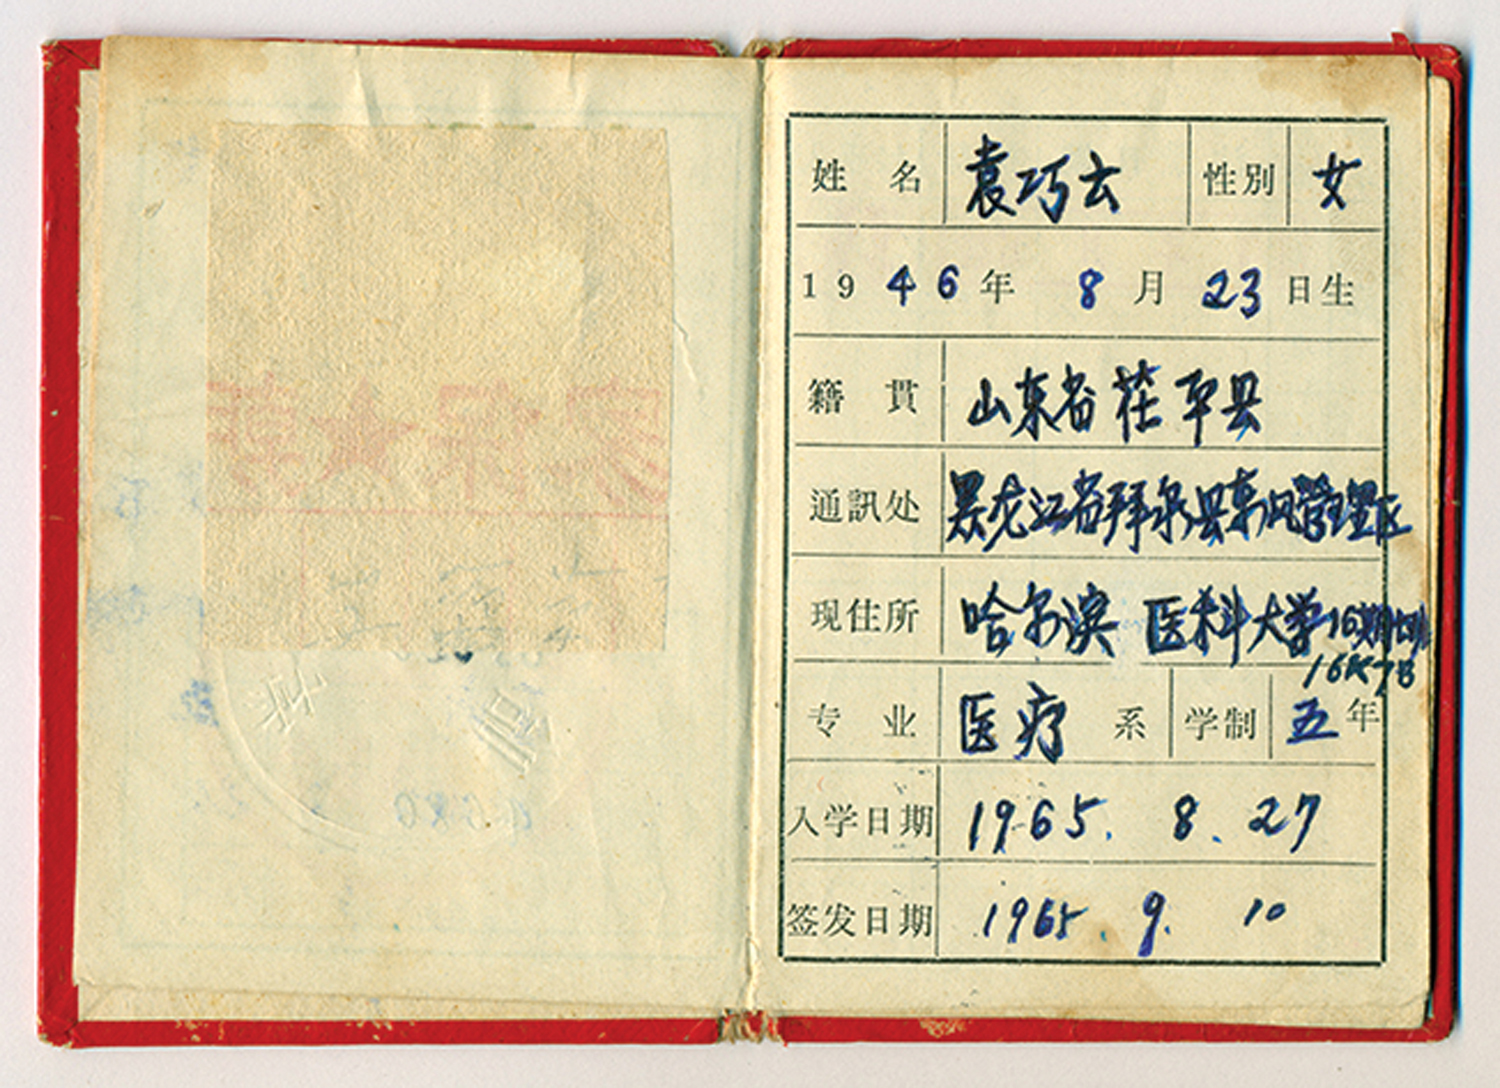 姓名 袁巧云 性別 女
1946年 8月 23日生
籍貫 山东省茌平县
通訊处 黑龙江省拜泉县东风管理区
现住所 哈尔滨医科大学16期
专业 医疗系 学制 五年
入学日期 1965. 8. 27
签发日期 1965. 9. 10